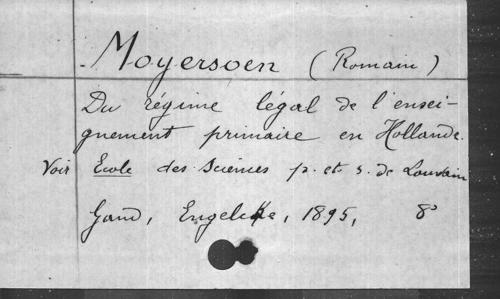 Moyersoen (Romain)
Du régime légal de l'ensei-
gnement primaire en Hollande.
Voir École des Sciences p. et s. de Louvain
Gand, Engelcke, 1895, 8°